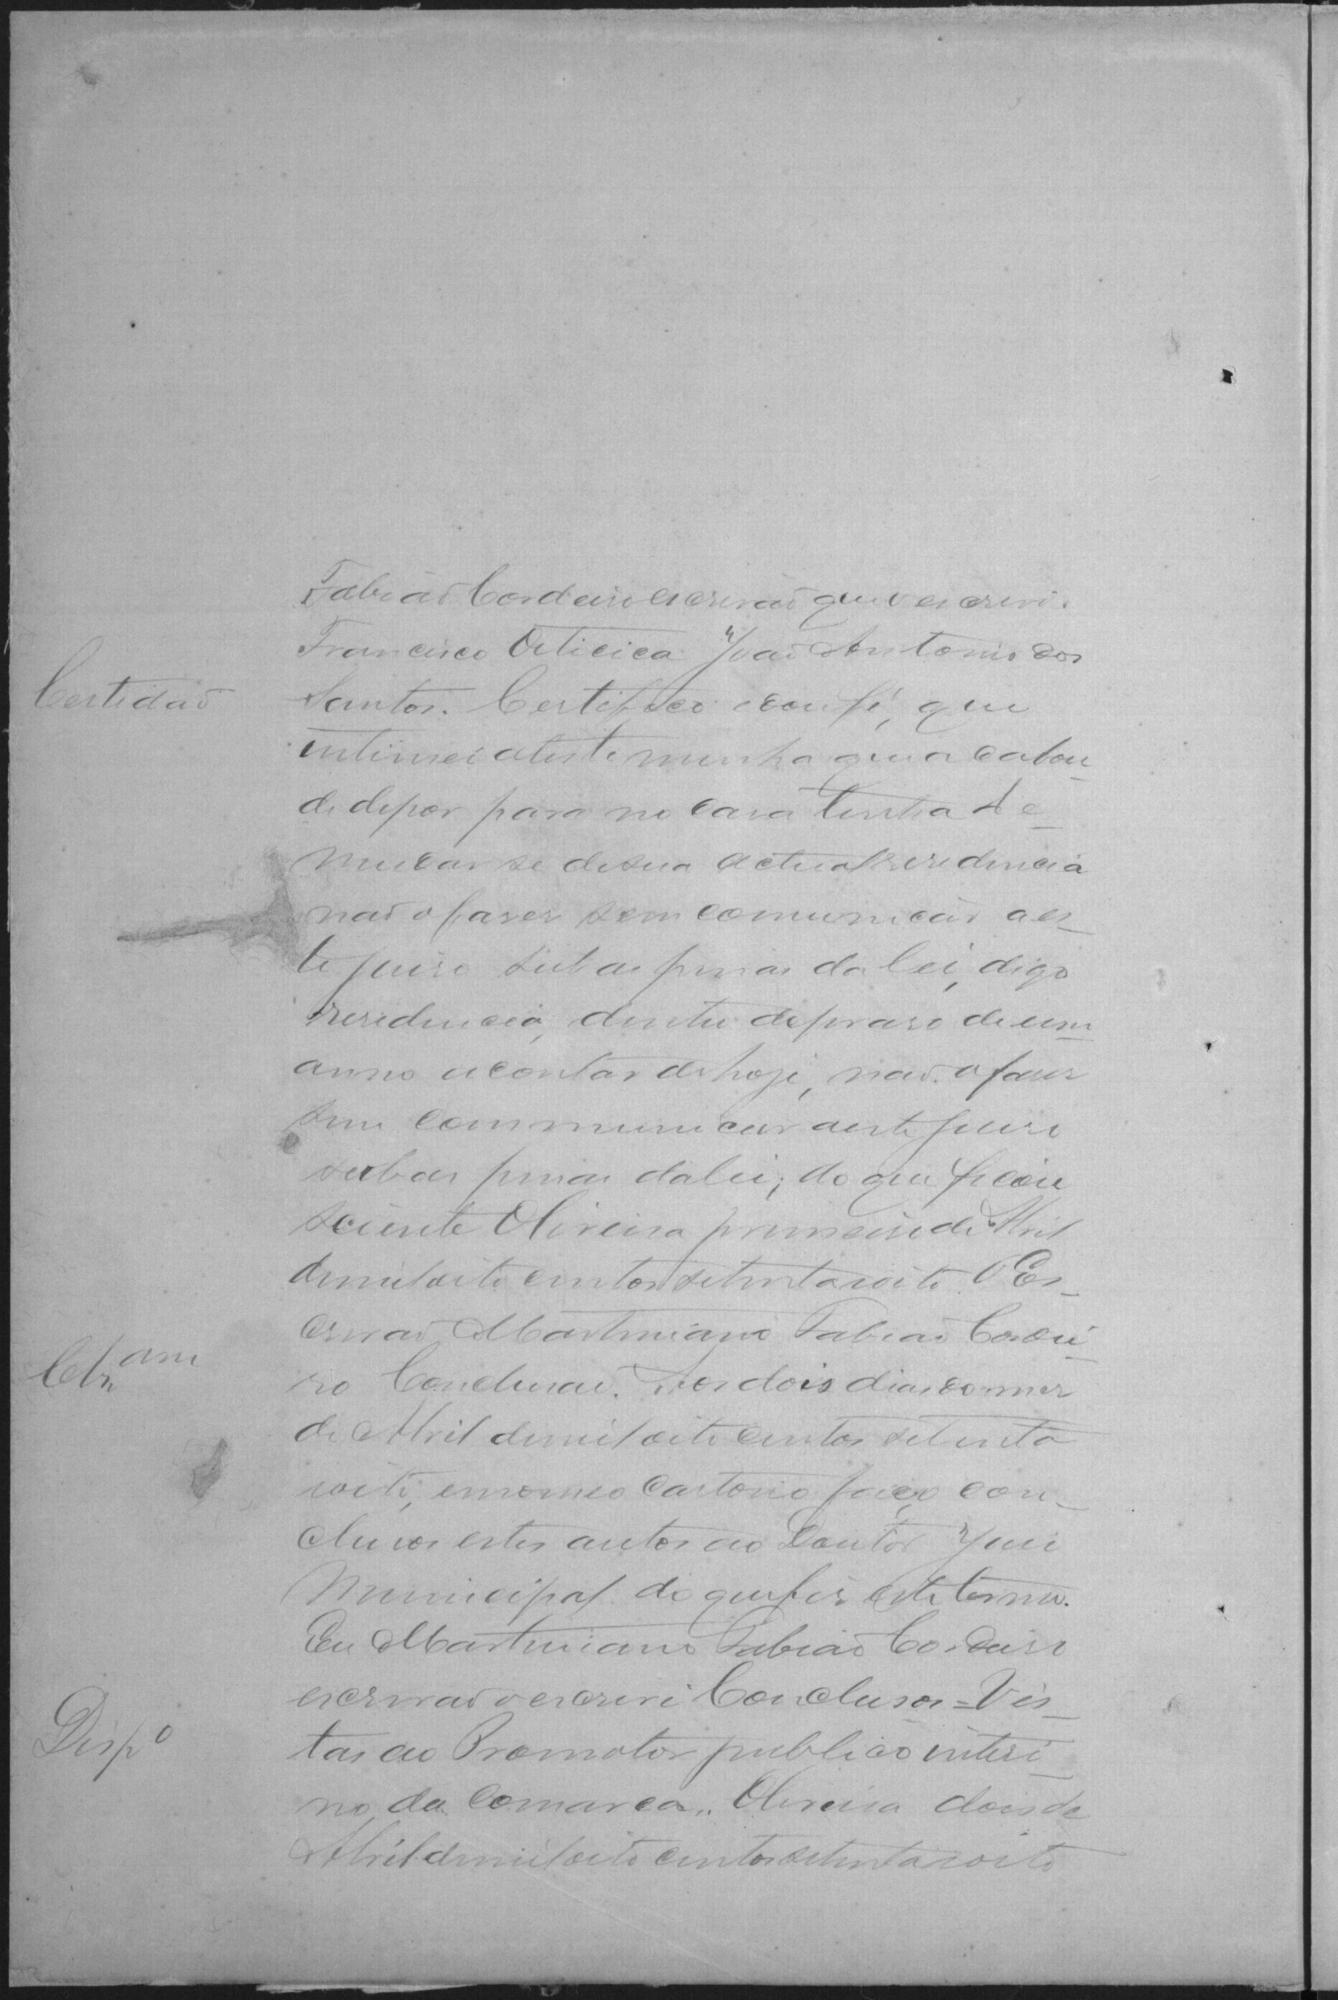 Fabião Cordeiro escrivão que o escrevi.
Francisco Oiticica João Antonio dos
Certidão
Santos. Certifico e dou fé, que
intimei a testemunha que acabou
de depor para no caso tenha de
mudar se de sua actual residencia
não o faser sem comunicar a es_
te juiso sub as penas da lei, digo
residencia, dentro do praso de um
anno a contar de hoje, não o faser
sem communicar a este juiso
sub as penas da lei; do que ficou
sciente Oliveira primeiro de Abril
de mil oito centos setenta e oito. O Es_
crivão Martiniano Fabião Cordei_
Clz.am
ro Conclusão. Aos dois dias do mez
de Abril de mil oito centos setenta
e oito, em o meo cartorio faço con_
clusos estes autos ao Doutor Juis
Municipal do que fis este termo.
Eu Martiniano Fabião Cordeiro
escrivão o escrevi Conclusos = Vis_
Disp.o
tas ao Promotor publico interi_
no da Comarca.. Oliveira dois de
Abril de mil oito centos setenta e oito